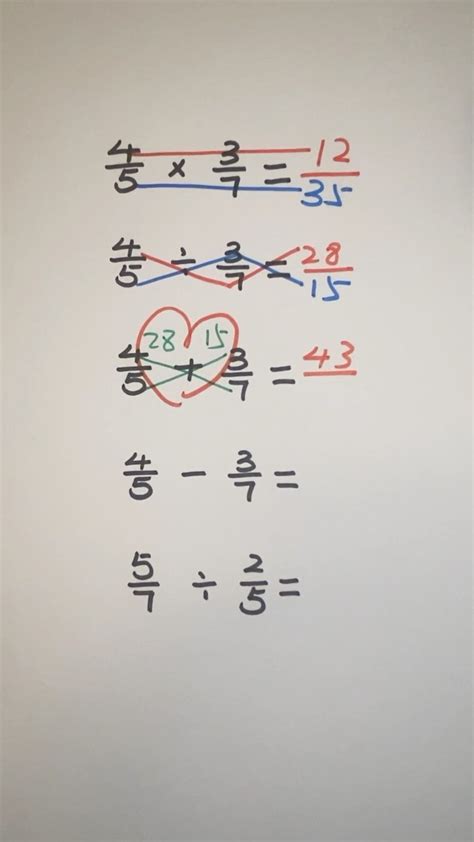 4/5 × 3/7 = 12/35
4/5 ÷ 3/7 = 28/15
28 15
4/5 + 3/7 = 43/
4/5 − 3/7 =
5/7 ÷ 2/5 =